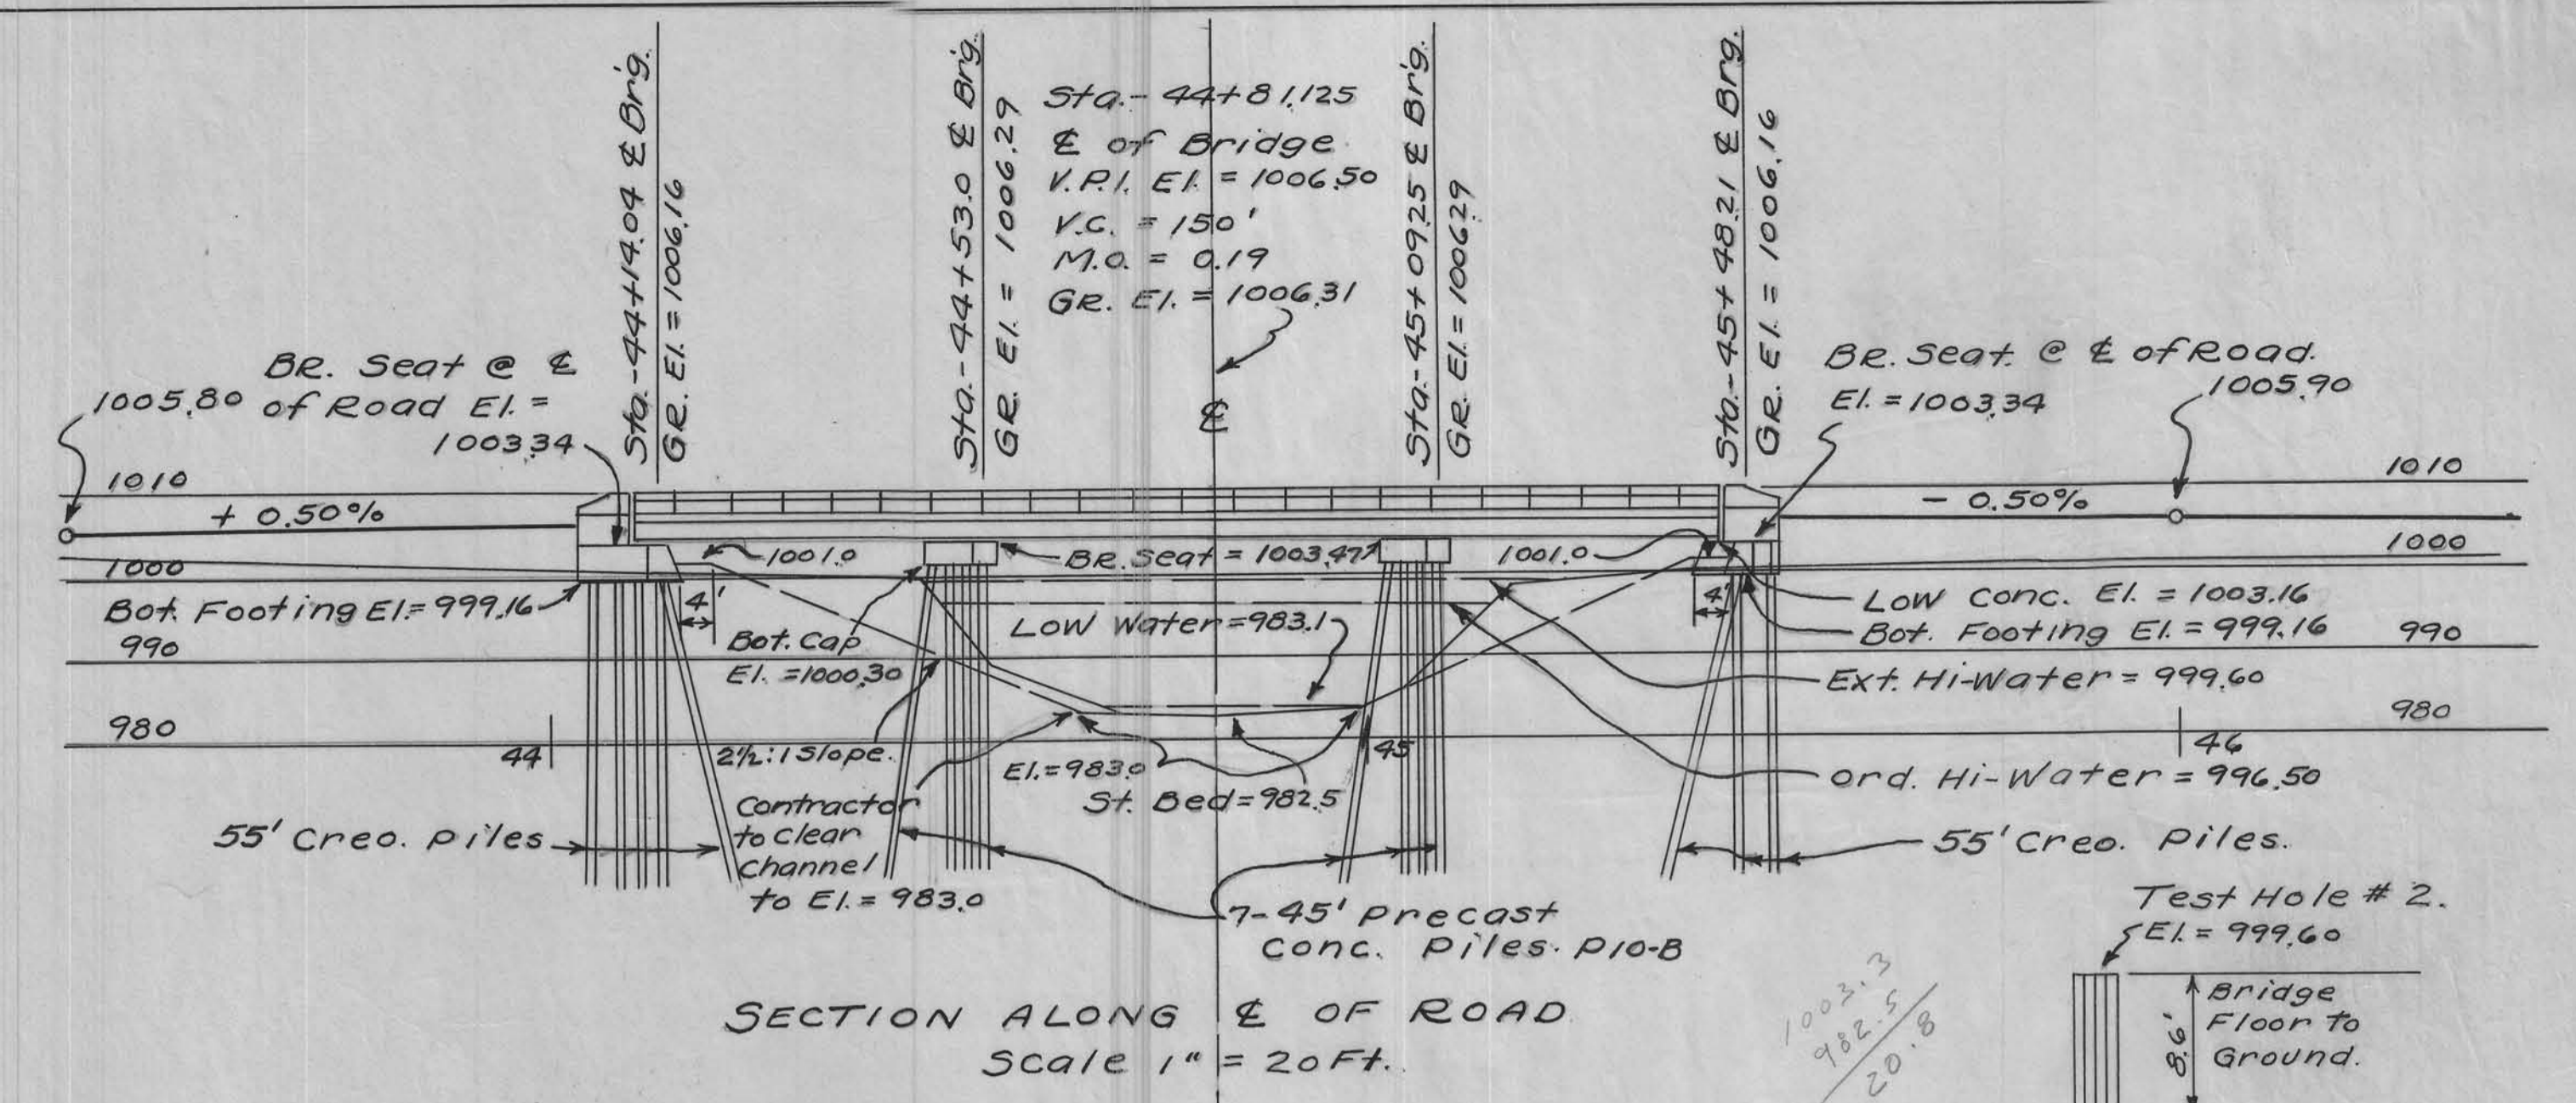 Sta.-44+14.04 ℄ Br'g.
GR. El. = 1006.16
Sta.-44+53.0 ℄ Br'g.
GR. El. = 1006.29
Sta.- 44+81.125
℄ of Bridge
V.P.I. El. = 1006.50
V.C. = 150'
M.O. = 0.19
GR. El. = 1006.31
℄
Sta.-45+09.25 ℄ Br'g.
GR. El. = 1006.29
Sta.-45+48.21 ℄ Brg.
GR. El. = 1006.16
BR. Seat @ ℄
of Road El. =
1003.34
1005.80
BR. Seat. @ ℄ of Road.
El. = 1003.34
1005.90
1010
+ 0.50%
- 0.50%
1010
1000
1001.0
BR. Seat = 1003.47
1001.0
1000
Bot. Footing El. = 999.16
4'
Bot. Cap
El. = 1000.30
Low Water = 983.1
4'
Low Conc. El. = 1003.16
Bot. Footing El. = 999.16
990
990
Ext. Hi-Water = 999.60
980
980
44
2½:1 Slope.
El. = 983.0
St. Bed = 982.5
45
46
Ord. Hi-Water = 996.50
Contractor
to Clear
Channel
to El. = 983.0
55' Creo. Piles
55' Creo. Piles.
7-45' Precast
Conc. Piles. P10-B
Test Hole # 2.
El. = 999.60
Bridge
Floor to
Ground.
8.6'
SECTION ALONG ℄ OF ROAD
Scale 1" = 20 Ft.
1003.3
982.5
20.8